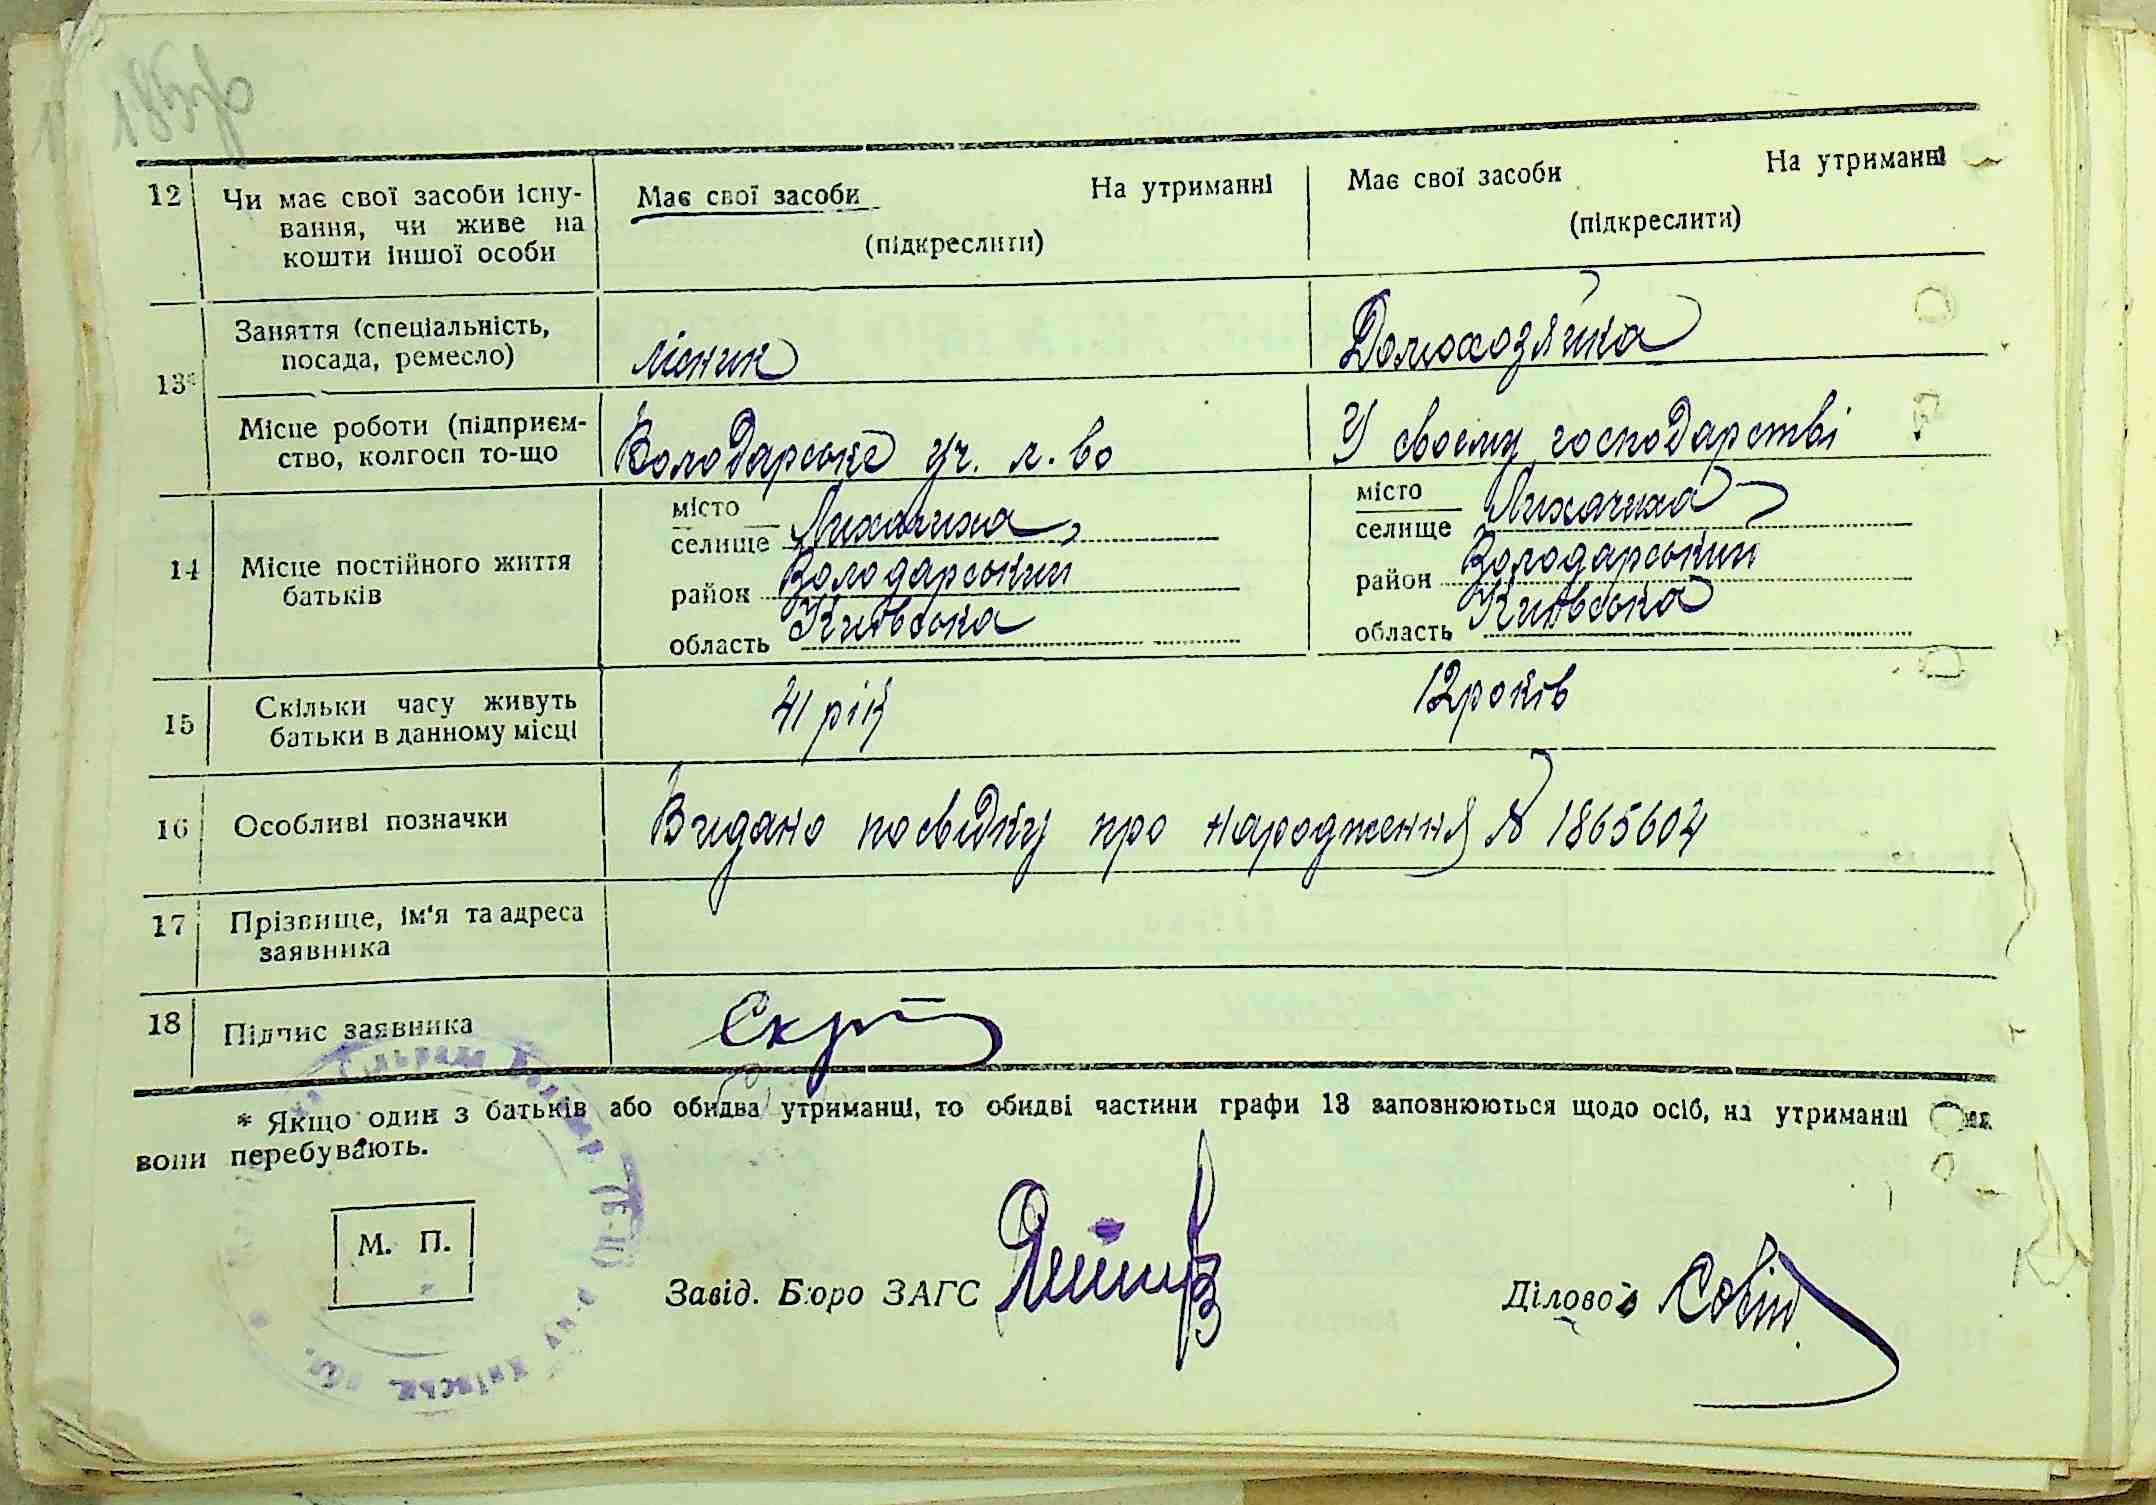 12 Чи має свої засоби існу-
вання, чи живе на
кошти іншої особи
Має свої засоби На утриманні
(підкреслити)
Має свої засоби На утриманні
(підкреслити)
13* Заняття (спеціальність,
посада, ремесло)
лісник
Домохозяйка
Місце роботи (підприєм-
ство, колгосп то-що
Володарське уч. л-во
У своєму господарстві
14 Місце постійного життя
батьків
місто
селище Лихачиха,
район Володарський
область Київська
місто
селище Лихачиха
район Володарський
область Київська
15 Скільки часу живуть
батьки в данному місці
41 рік
12 років
16 Особливі позначки
Видано посвідку про народження № 1865604
17 Прізвище, ім'я та адреса
заявника
18 Підпис заявника
* Якщо один з батьків або обидва утриманці, то обидві частини графи 13 заповнюються щодо осіб, на утриманні яких
вони перебувають.
М. П.
Завід. Бюро ЗАГС
Діловод